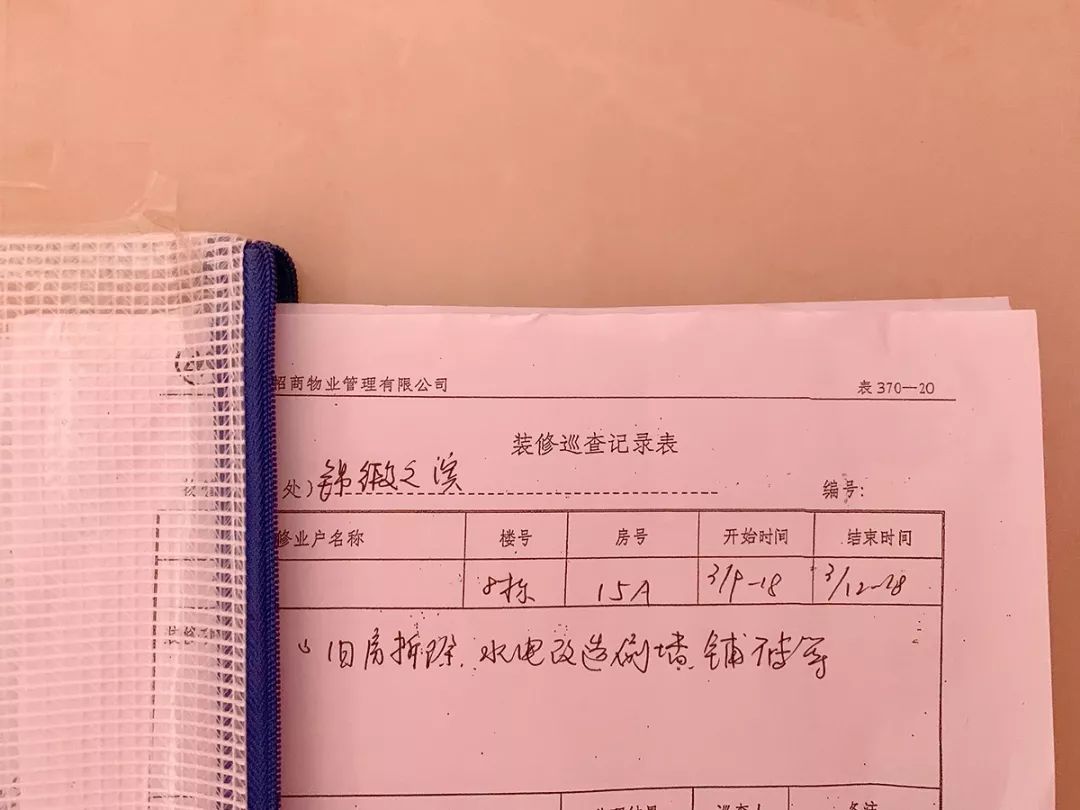 招商物业管理有限公司 表370—20
装修巡查记录表
处) 锦缎之滨 编号:
修业户名称 楼号 房号 开始时间 结束时间
8栋 15A
旧房拆除.水电改造刷墙.铺砖等
处理结果 巡查人 备注